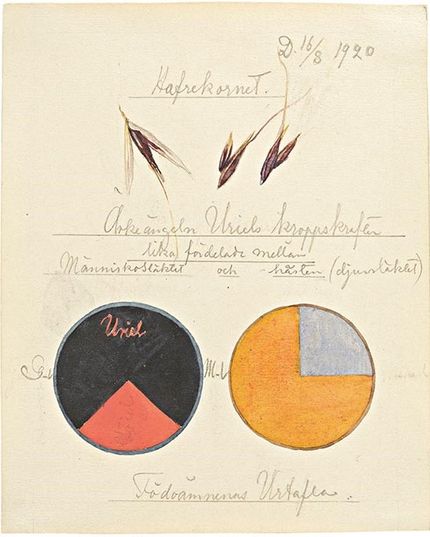 D. 16/8 1920
Hafrekornet.
Ärkeängeln Uriels kroppskrafter
lika fördelade mellan
Människosläktet och hästen (djursläktet)
Uriel
G-l
M-l
Födoämnenas Urtafla.